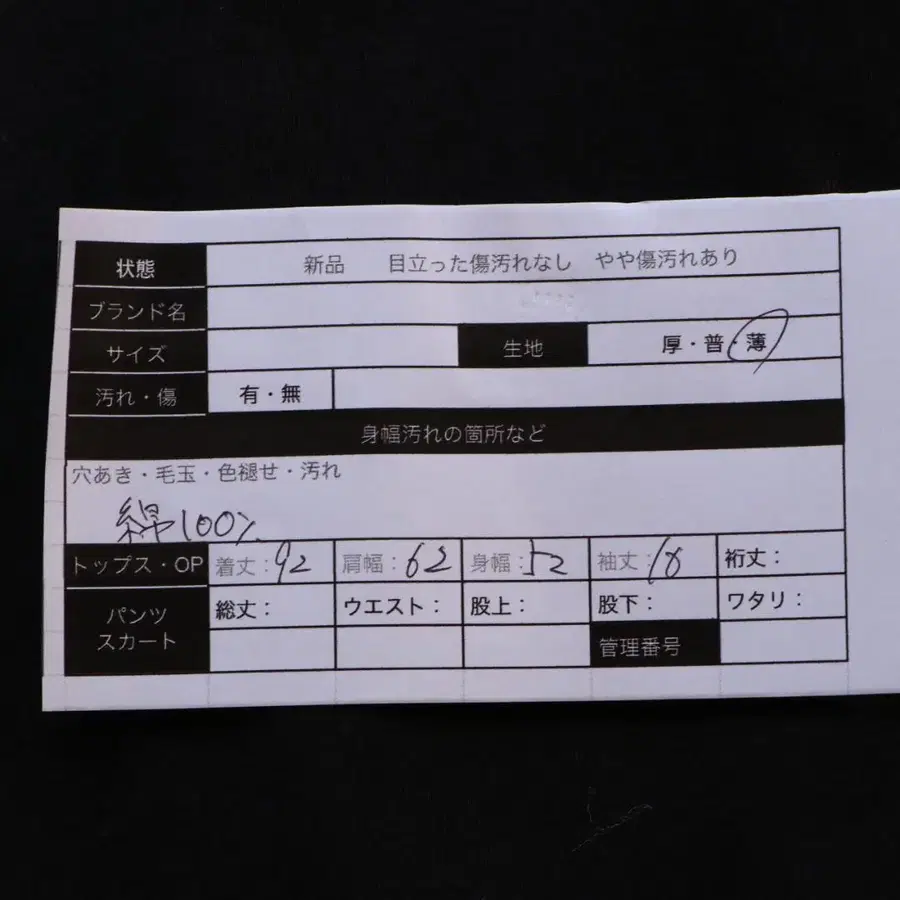 状態 新品 目立った傷汚れなし やや傷汚れあり
ブランド名
サイズ 生地 厚・普・薄
汚れ・傷 有・無
身幅汚れの箇所など
穴あき・毛玉・色褪せ・汚れ
綿100%
トップス・OP 着丈:92 肩幅:62 身幅:52 袖丈:18 裄丈:
パンツ 総丈: ウエスト: 股上: 股下: ワタリ:
スカート 管理番号